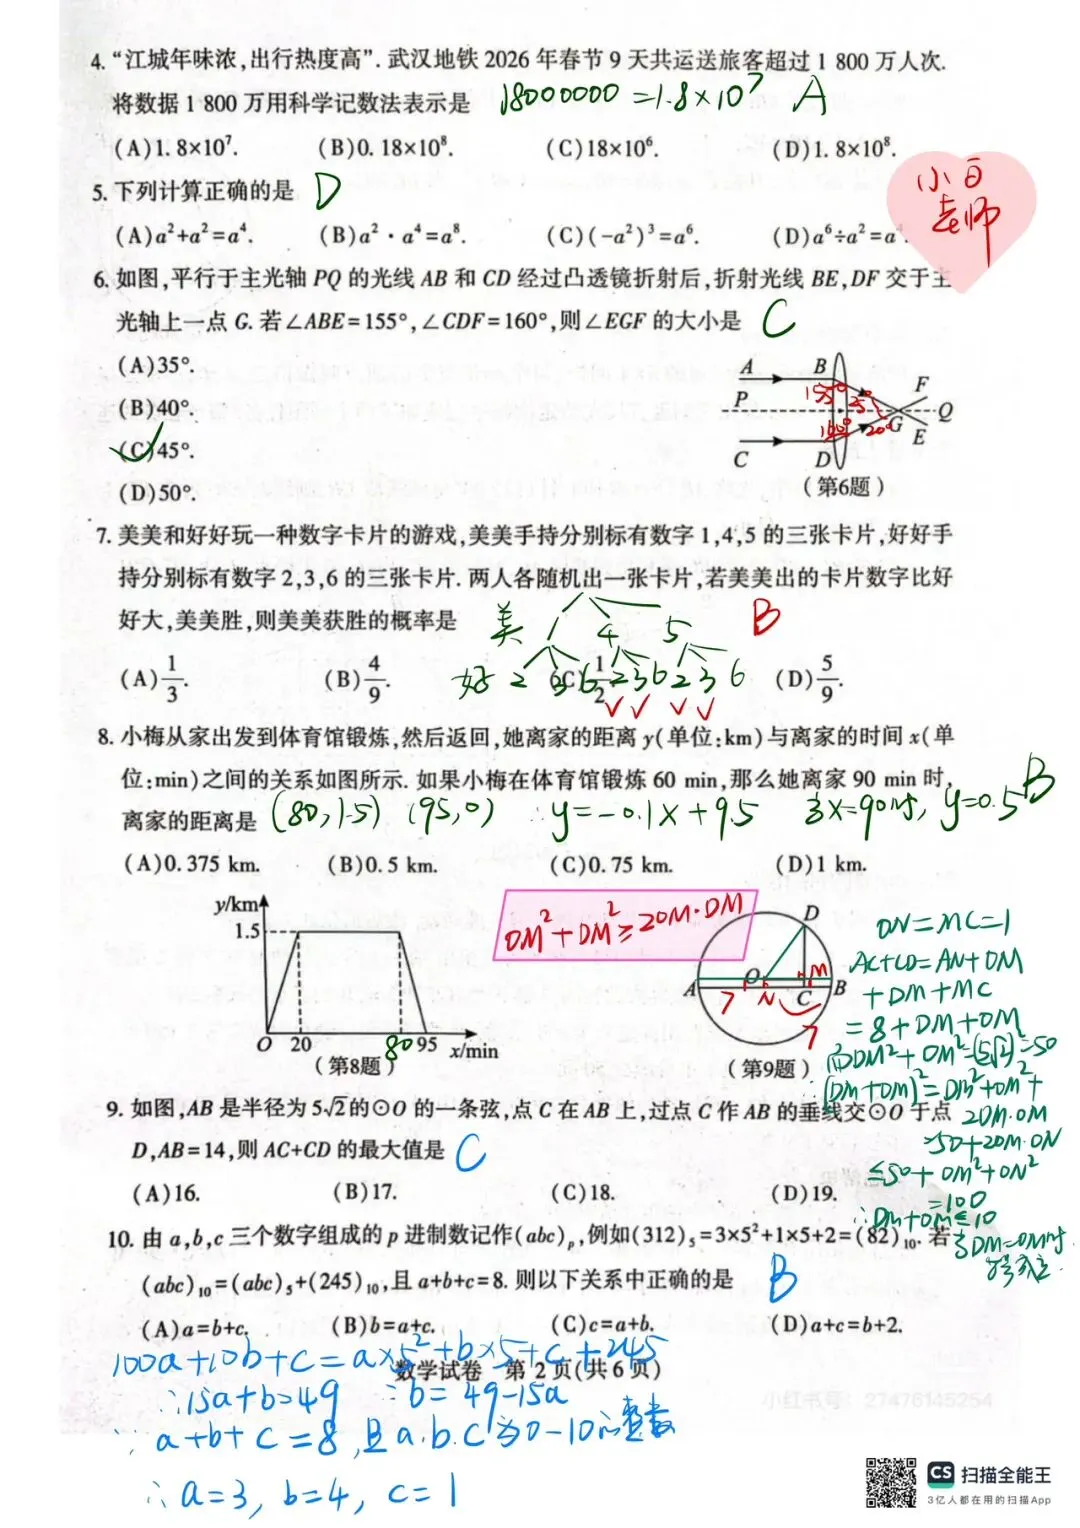 4. “江城年味浓,出行热度高”. 武汉地铁 2026 年春节 9 天共运送旅客超过 1 800 万人次.
将数据 1 800 万用科学记数法表示是 18000000 =1.8×10⁷ A
(A)1. 8×10⁷. (B)0. 18×10⁸. (C)18×10⁶. (D)1. 8×10⁸.
5. 下列计算正确的是 D
(A)a²+a²=a⁴. (B)a²·a⁴=a⁸. (C)(-a²)³=a⁶. (D)a⁶÷a²=a⁴.
小白
老师
6. 如图,平行于主光轴 PQ 的光线 AB 和 CD 经过凸透镜折射后,折射光线 BE,DF 交于主
光轴上一点 G. 若∠ABE=155°,∠CDF=160°,则∠EGF 的大小是 C
(A)35°.
(B)40°.
(C)45°.
(D)50°.
A B F
P G Q
C D E
155° 25°
160° 20°
(第6题)
7. 美美和好好玩一种数字卡片的游戏,美美手持分别标有数字 1,4,5 的三张卡片,好好手
持分别标有数字 2,3,6 的三张卡片. 两人各随机出一张卡片,若美美出的卡片数字比好
好大,美美胜,则美美获胜的概率是 B
美 1 4 5
好 2 3 6 2 3 6 2 3 6
(A)1/3. (B)4/9. (C)1/2. (D)5/9.
8. 小梅从家出发到体育馆锻炼,然后返回,她离家的距离 y(单位:km)与离家的时间 x(单
位:min)之间的关系如图所示. 如果小梅在体育馆锻炼 60 min,那么她离家 90 min 时,
离家的距离是 (80,1.5) (95,0) ∴y=-0.1x+9.5 当x=90时, y=0.5 B
(A)0. 375 km. (B)0. 5 km. (C)0. 75 km. (D)1 km.
y/km
1.5
O 20 80 95 x/min
(第8题)
OM²+DM²≥2OM·DM
D
M
A O N C B
7 7
(第9题)
ON=MC=1
AC+CD=AN+OM
+DM+MC
=8+DM+OM
而DM²+OM²=(5√2)²=50
(DM+OM)²=DM²+OM²+
2DM·OM
=50+2DM·ON
≤50+OM²+ON²
=100
∴DM+OM≤10
当DM=OM时
9. 如图,AB 是半径为 5√2的⊙O 的一条弦,点 C 在 AB 上,过点 C 作 AB 的垂线交⊙O 于点
D,AB=14,则 AC+CD 的最大值是 C
(A)16. (B)17. (C)18. (D)19.
10. 由 a,b,c 三个数字组成的 p 进制数记作(abc)ₚ,例如(312)₅=3×5²+1×5+2=(82)₁₀. 若
(abc)₁₀=(abc)₅+(245)₁₀,且 a+b+c=8. 则以下关系中正确的是 B
(A)a=b+c. (B)b=a+c. (C)c=a+b. (D)a+c=b+2.
100a+10b+c=a×5²+b×5+c+245
数学试卷 第 2 页(共 6 页)
∴15a+b=49 ∴b=49-15a
∵a+b+c=8,且a.b.c为0-10的整数
∴a=3, b=4, c=1
小红书号: 27476145254
CS 扫描全能王
3亿人都在用的扫描App